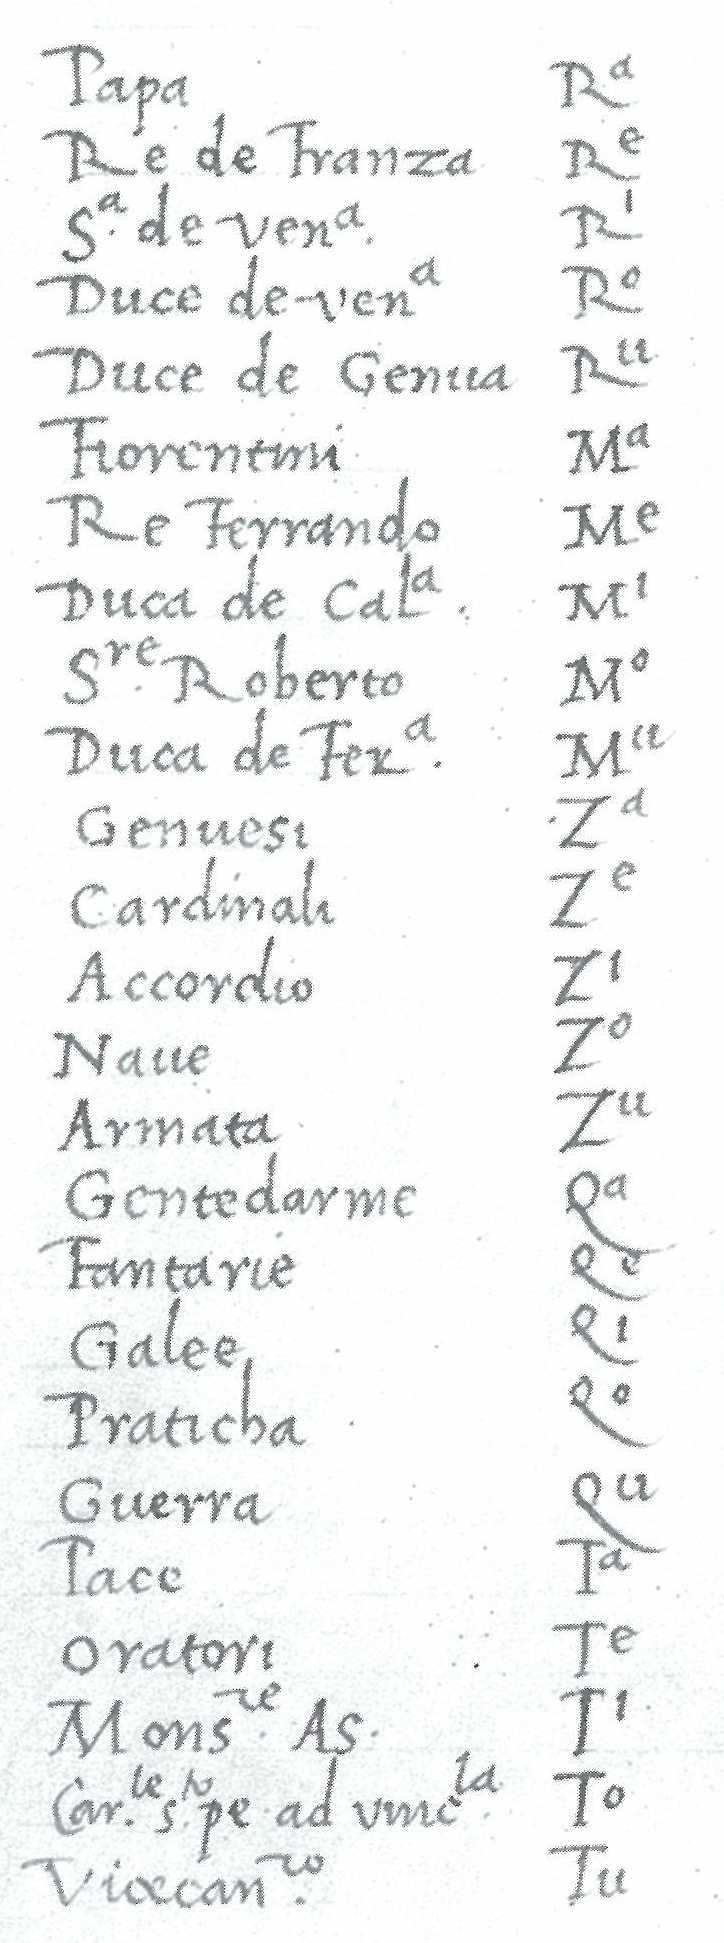 Papa Rᵃ
Re de Franza Rᵉ
Sᵃ. de venᵃ. Rⁱ
Duce de venᵃ Rᵒ
Duce de Genua Rᵘ
Fiorentini Mᵃ
Re Ferrando Mᵉ
Duca de Calᵃ. Mⁱ
Sʳᵉ. Roberto Mᵒ
Duca de Ferᵃ. Mᵘ
Genuesi Zᵃ
Cardinali Zᵉ
Accordio Zⁱ
Naue Zᵒ
Armata Zᵘ
Gentedarme Qᵃ
Fantarie Qᵉ
Galee Qⁱ
Praticha Qᵒ
Guerra Qᵘ
Pace Tᵃ
Oratori Tᵉ
Monsʳᵉ. As. Tⁱ
Car.ˡᵉ s.ᵗᵒ pe ad vincˡᵃ. Tᵒ
Tᵘ